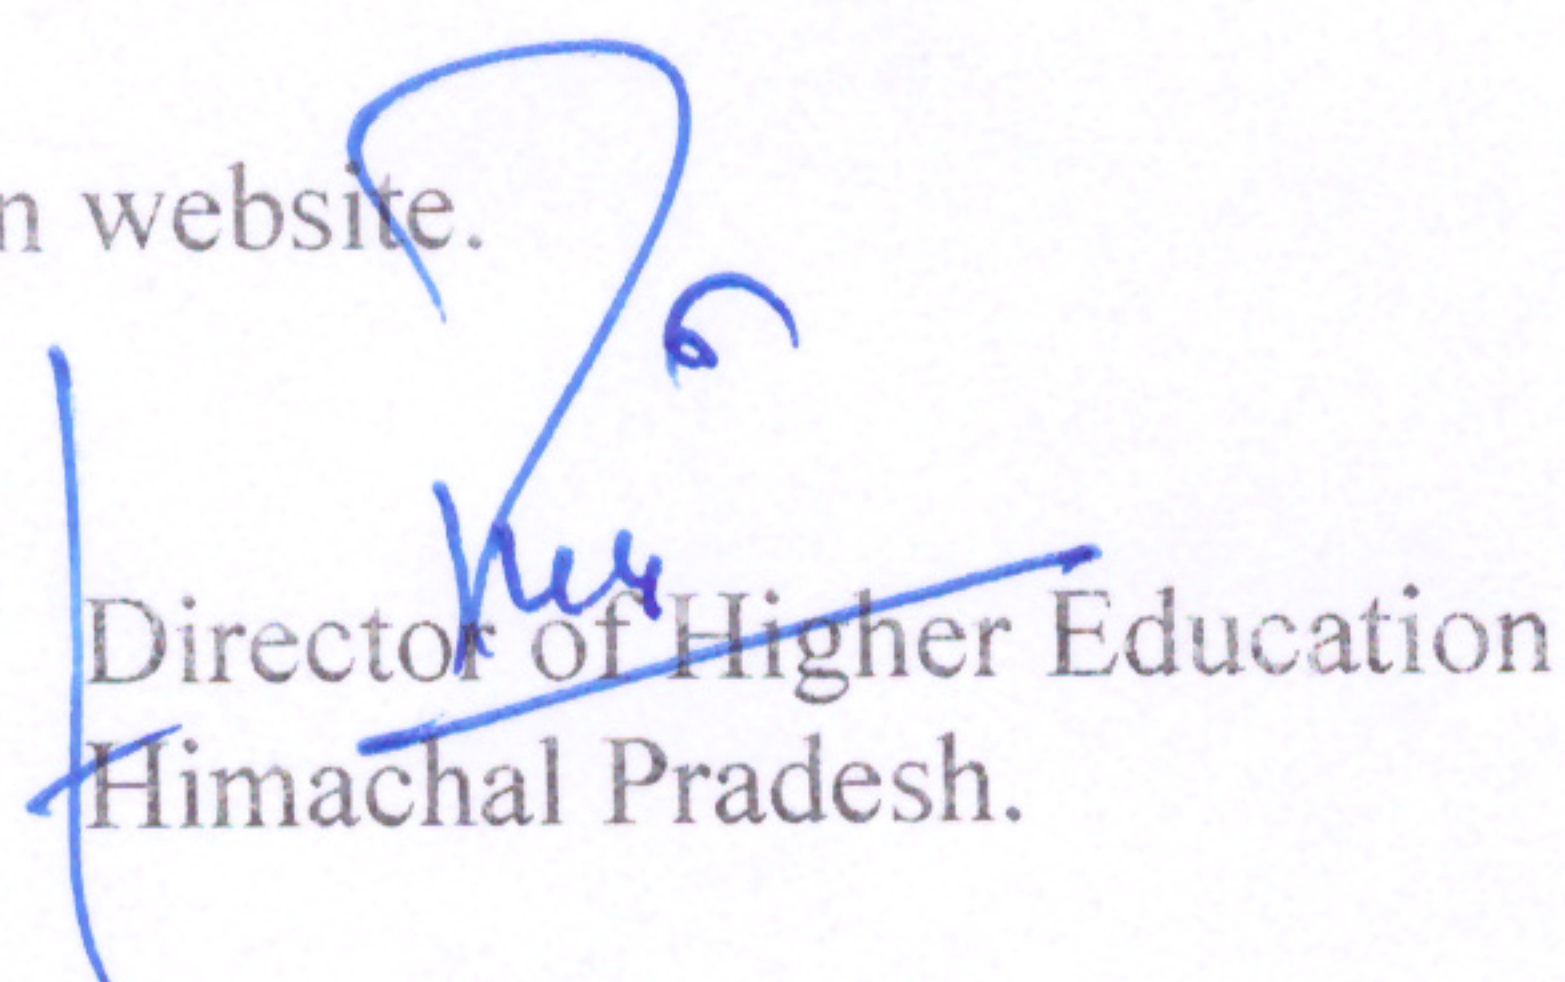 n website.
Director of Higher Education
Himachal Pradesh.